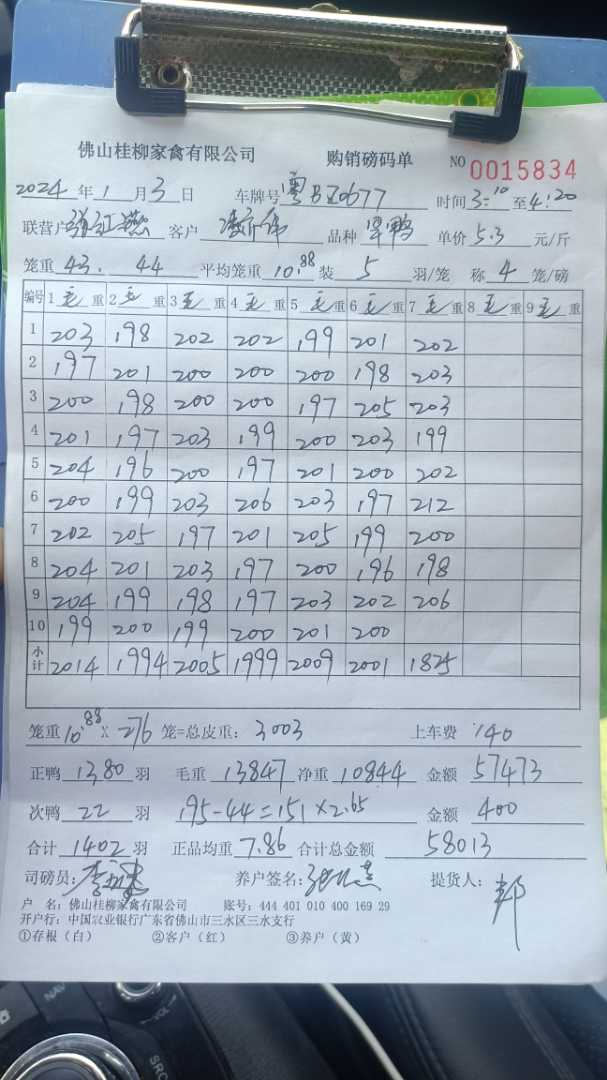 佛山桂柳家禽有限公司 购销磅码单 NO 0015834
2024 年 1 月 3 日 车牌号 粤BZ0677 时间 3:10 至 4:20
联营户 客户 品种 旱鸭 单价 5.3 元/斤
笼重 43. 44 平均笼重 10.88 装 5 羽/笼 称 4 笼/磅
编号 1 毛 重 2 毛 重 3 毛 重 4 毛 重 5 毛 重 6 毛 重 7 毛 重 8 毛 重 9 毛 重
1 203 198 202 202 199 201 202
2 197 201 200 200 200 198 203
3 200 198 200 200 197 205 203
4 201 197 203 199 200 203 199
5 204 196 200 197 201 200 202
6 200 199 203 206 203 197 212
7 202 205 197 201 205 199 200
8 204 201 203 197 200 196 198
9 204 199 198 197 203 202 206
10 199 200 199 200 201 200
小计 2014 1994 2005 1999 2009 2001 1825
笼重 10.88 × 276 笼=总皮重: 3003 上车费 140
正鸭 1380 羽 毛重 13847 净重 10844 金额 57473
次鸭 22 羽 195-44=151×2.65 金额 400
合计 1402 羽 正品均重 7.86 合计总金额 58013
司磅员: 养户签名: 提货人:
户 名: 佛山桂柳家禽有限公司 账号: 444 401 010 400 169 29
开户行: 中国农业银行广东省佛山市三水区三水支行
①存根（白） ②客户（红） ③养户（黄）
NAV
VOL
SRC